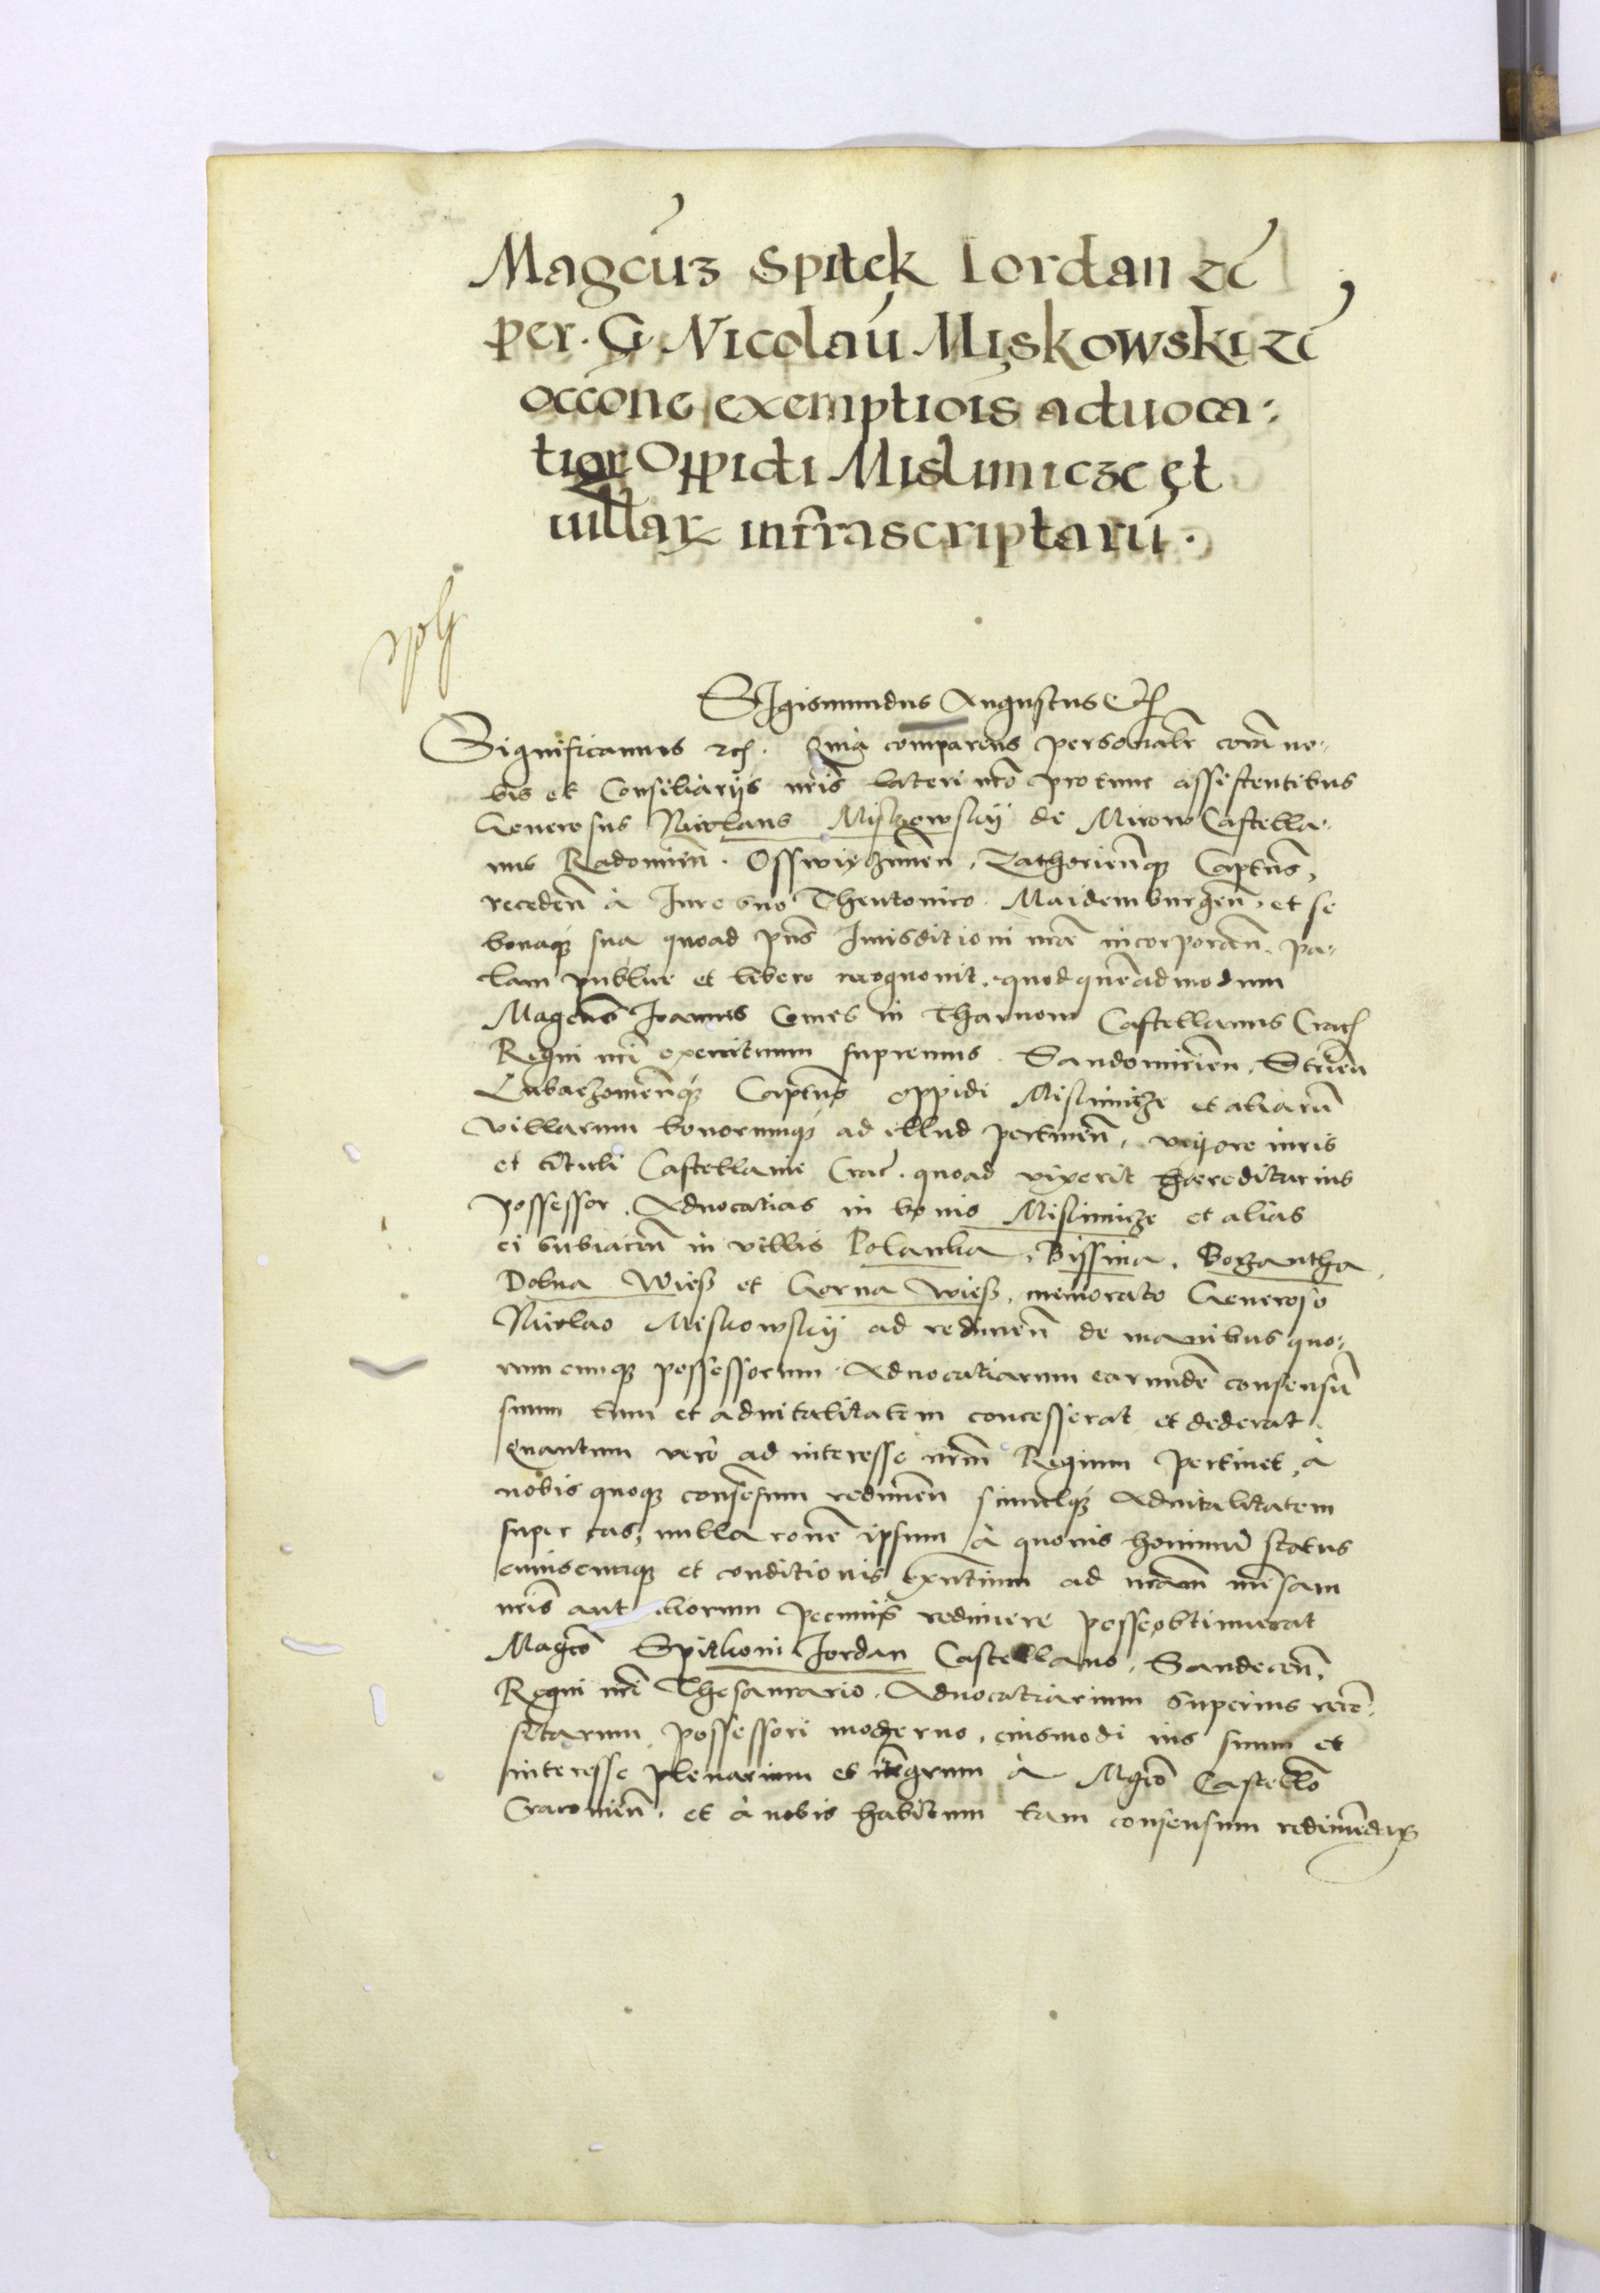 Magcūz Spitek Iordan zc
per. G. Nicolaū Miskowski zc
occōne exemptiōis aduoca:
tior Oppidi Mislimicze et
uillar infrascriptarū.
SIgismundus Augustus Etc
Significamus etc. Quia comparens personalr coram no-
bis et Consiliarijs nris lateri nro protunc assistentibus
Generosus Nicolaus Miskowskij de Mirow Castella-
nus Radomien. Osswiyczimen, Zathorienq Captus,
receden à Iure suo Theutonico Maidemburgen, et se
bonaq sua quoad pns Iurisditioni nrae incorporan. pa-
lam publice et libere recognouit, quod quēadmodum
Magcus Ioannes Comes in Tharnow Castellanus Crac
Regni nri exercituum supremus. Sandomirien, Strien
Lubaczowienq Captus oppidi Mislimicze et aliarū
villarum bonorumq ad illud pertinen, vigore iuris
et tituli Castellanie Crac. quoad vixerit haereditarius
possessor. Aduocatias in bonis Mislimicze et alias
ei subiacen in villis Polanka, Bissina, Bogantha,
Dolna Wiess et Gorna wiess, memorato Generoso
Nicolao Miskowskij ad redimen de manibus quo-
rumcunq possessorum Aduocatiarum earundē consensū
suum tum et aduitalitatem concesserat et dederat.
Quantum vero ad interesse nrm Regium pertinet, à
nobis quoq consensum redimen simulq aduitalitatem
super eas, nulla rone ipsum à quouis hominū status
cuiuscunq et conditionis exntium ad nram mēsam
nris aut aliorum pecunijs redimere posse obtinuerat
Magco Spithkoni Iordan Castellano Sandecen,
Regni nri Thesaurario. Aduocatiarum superius recē-
sitarum possessori moderno, eiusmodi ius suum et
interesse plenarium et itegrum à Mgco Castello
Cracouien. et à nobis habitum tam consensum redimēdar